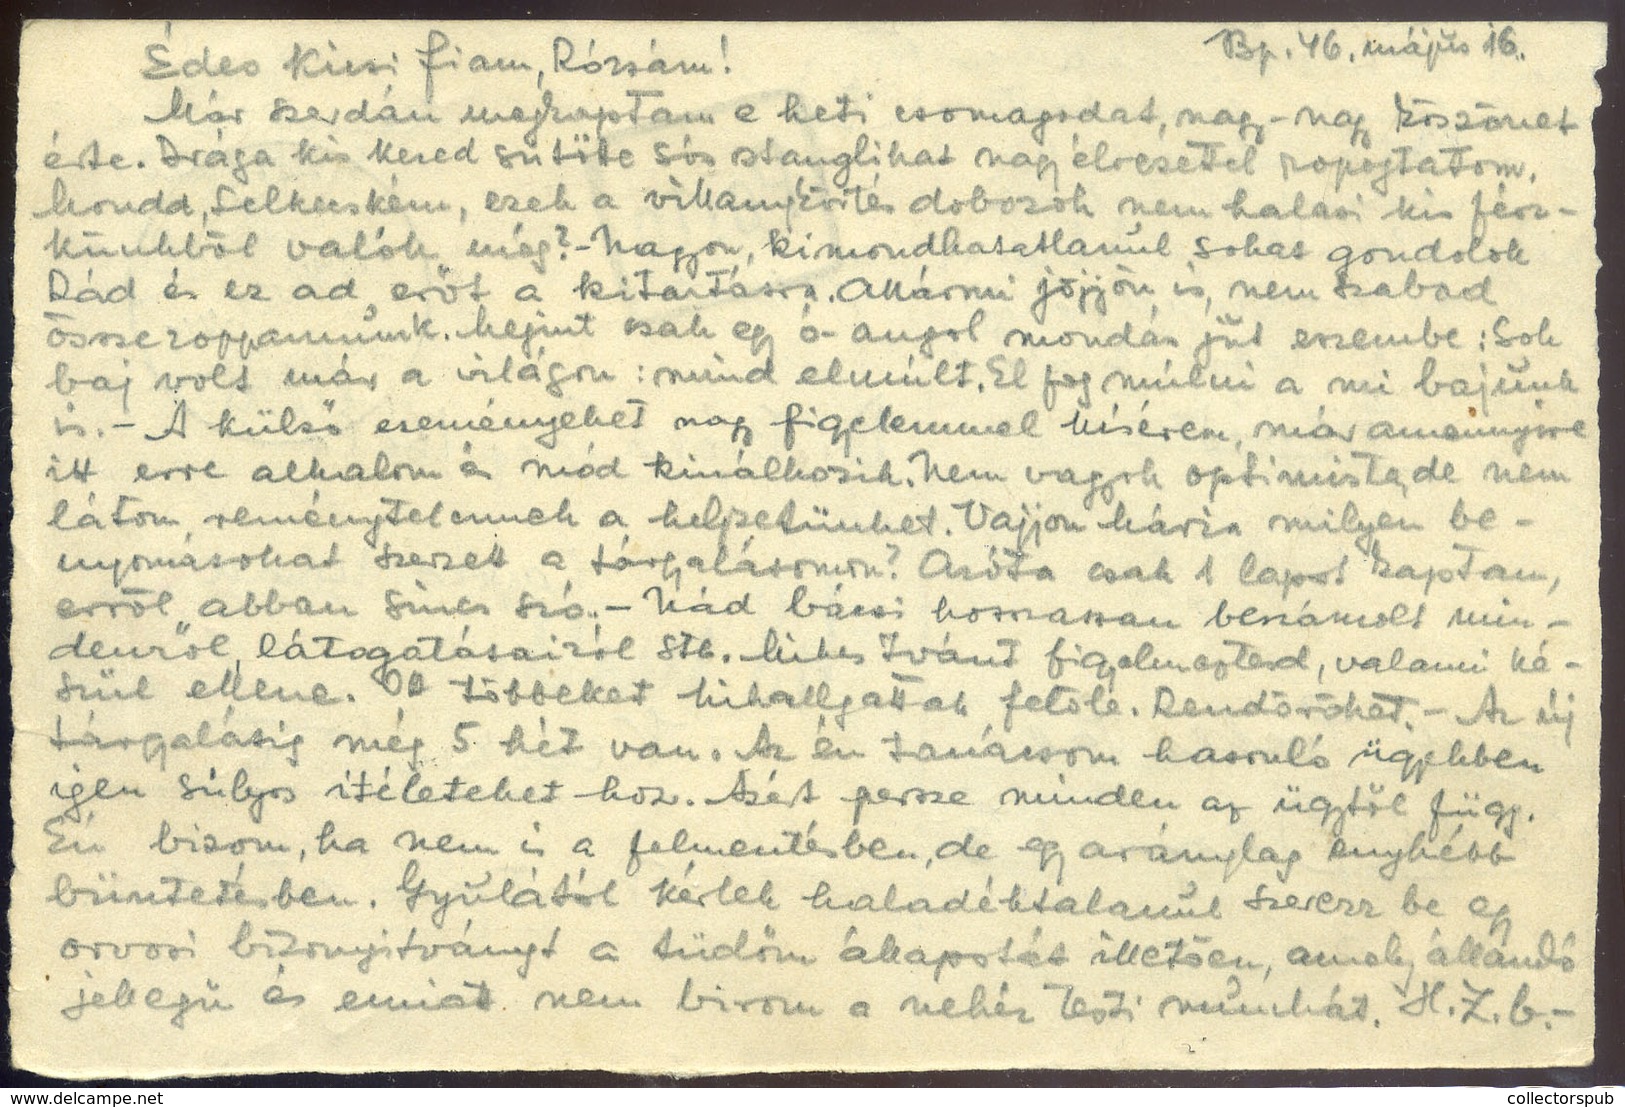 Bp. 46. május 16.
Édes Kicsi fiam, Rózsám!
Már szerdán megkaptam e heti csomagodat, nagy-nagy köszönet
érte. Drága kis kezed sütöte sós stanglikat nagy élvezettel ropogtatom.
Mondd, Lelkecském, ezek a villanykörtés dobozok nem halasi kis fész-
künkből valók még? - Nagyon, kimondhatatlanul sokat gondolok
Rád és ez ad erőt a kitartásra. Akármi jöjjön is, nem szabad
összeroppannunk. Megint csak egy ó-angol mondás jut eszembe: Sok
baj volt már a világon: mind elmúlt. El fog múlni a mi bajunk
is. - A külső eseményeket nagy figyelemmel kisérem, már amennyire
itt erre alkalom és mód kinálkozik. Nem vagyok optimista, de nem
látom reménytelennek a helyzetünket. Vajjon Mária milyen be-
nyomásokat szerzett a tárgyalásomon? Azóta csak 1 lapot kaptam,
erről abban sincs szó. - Nád bácsi hosszassan beszámolt min-
denről, látogatásairól stb. Mikes Ivánt figyelmeztesd, valami ké-
szül ellene. Itt többeket kihallgattak felőle. Rendőröket. - Az új
tárgyalásig még 5 hét van. Az én tanácsom hasonló ügyekben
igen súlyos itéleteket hoz. Azért persze minden az ügytől függ.
Én bizom, ha nem is a felmentésben, de egy aránylag enyhébb
büntetésben. Gyulától kérlek haladéktalanul szerezz be egy
orvosi bizonyitványt a tüdőm állapotát illetően, amely állandó
jellegü és emiatt nem birom a nehéz testi munkát. H. Z. b. -
collectorspub
www.delcampe.net